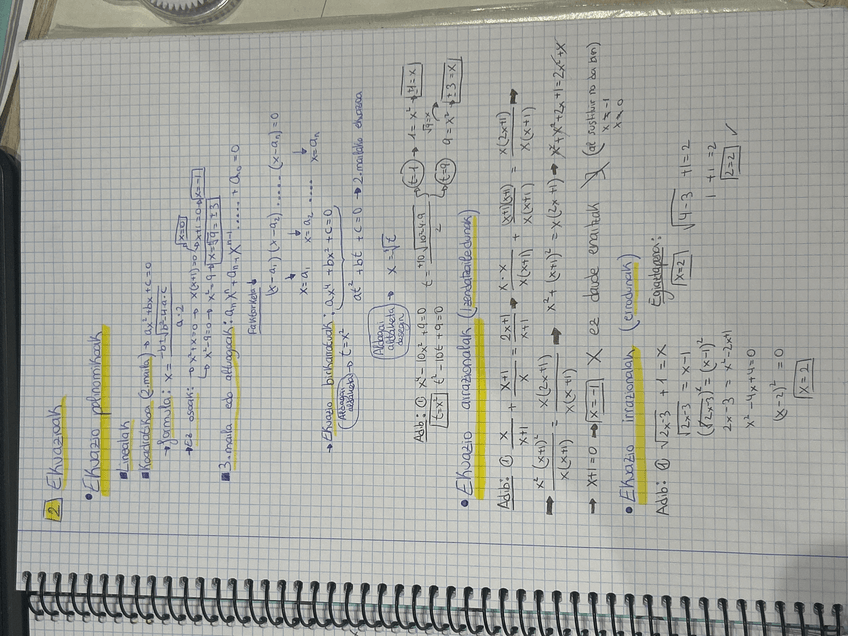 2 Ekuazioak
• Ekuazio polinomikoak
▪ Linealak
▪ Koadratikoa (2.maila) → ax²+bx+c=0
→ formula: x = -b±√b²-4·a·c / a·2
→ Ez osoak: → x²+x=0 → x(x+1)=0 → x=0
→ x+1=0 → x=-1
→ x²-9=0 → x²=9 → x=√9=±3
▪ 3.maila edo altuagoak: aₙxⁿ+aₙ₋₁xⁿ⁻¹ ..... + a₀=0
Faktorketa ↓
(x-a₁)(x-a₂) ..... (x-aₙ)=0
x=a₁ x=a₂ ..... x=aₙ
→ Ekuazio bikarratuak: ax⁴+bx²+c=0
Aldagai aldaketa → t=x² at²+bt+c=0 → 2.mailako ekuazioa
Aldagai aldaketa desegin → x=±√t
Adib: ① x⁴-10x²+9=0
t=x² t²-10t+9=0 t = +10±√10²-4·9 / 2 → t=1 → 1=x² → ±1=x
√9=x
t=9 → 9=x² → ±3=x
• Ekuazio arrazionalak (izendatzailedunak)
Adib: ① x/x+1 + x+1/x = 2x+1/x+1 → x·x/x(x+1) + (x+1)(x+1)/x(x+1) = x(2x+1)/x(x+1) →
→ x²(x+1)²/x(x+1) = x(2x+1)/x(x+1) → x²+(x+1)²=x(2x+1) → x²+x²+2x+1=2x²+x
→ x+1=0 → x=-1 X ez daude emaitzak (al sustituir no da bien)
x≠-1
x≠0
• Ekuazio irrazionalak (errodunak)
Adib: ① √2x-3 + 1 = x
√2x-3 = x-1
(√2x-3)² = (x-1)²
2x-3 = x²-2x+1
x²-4x+4=0
(x-2)²=0
x=2
Egiaztapena:
x=2 √4-3 +1=2
1+1=2
2=2 ✓